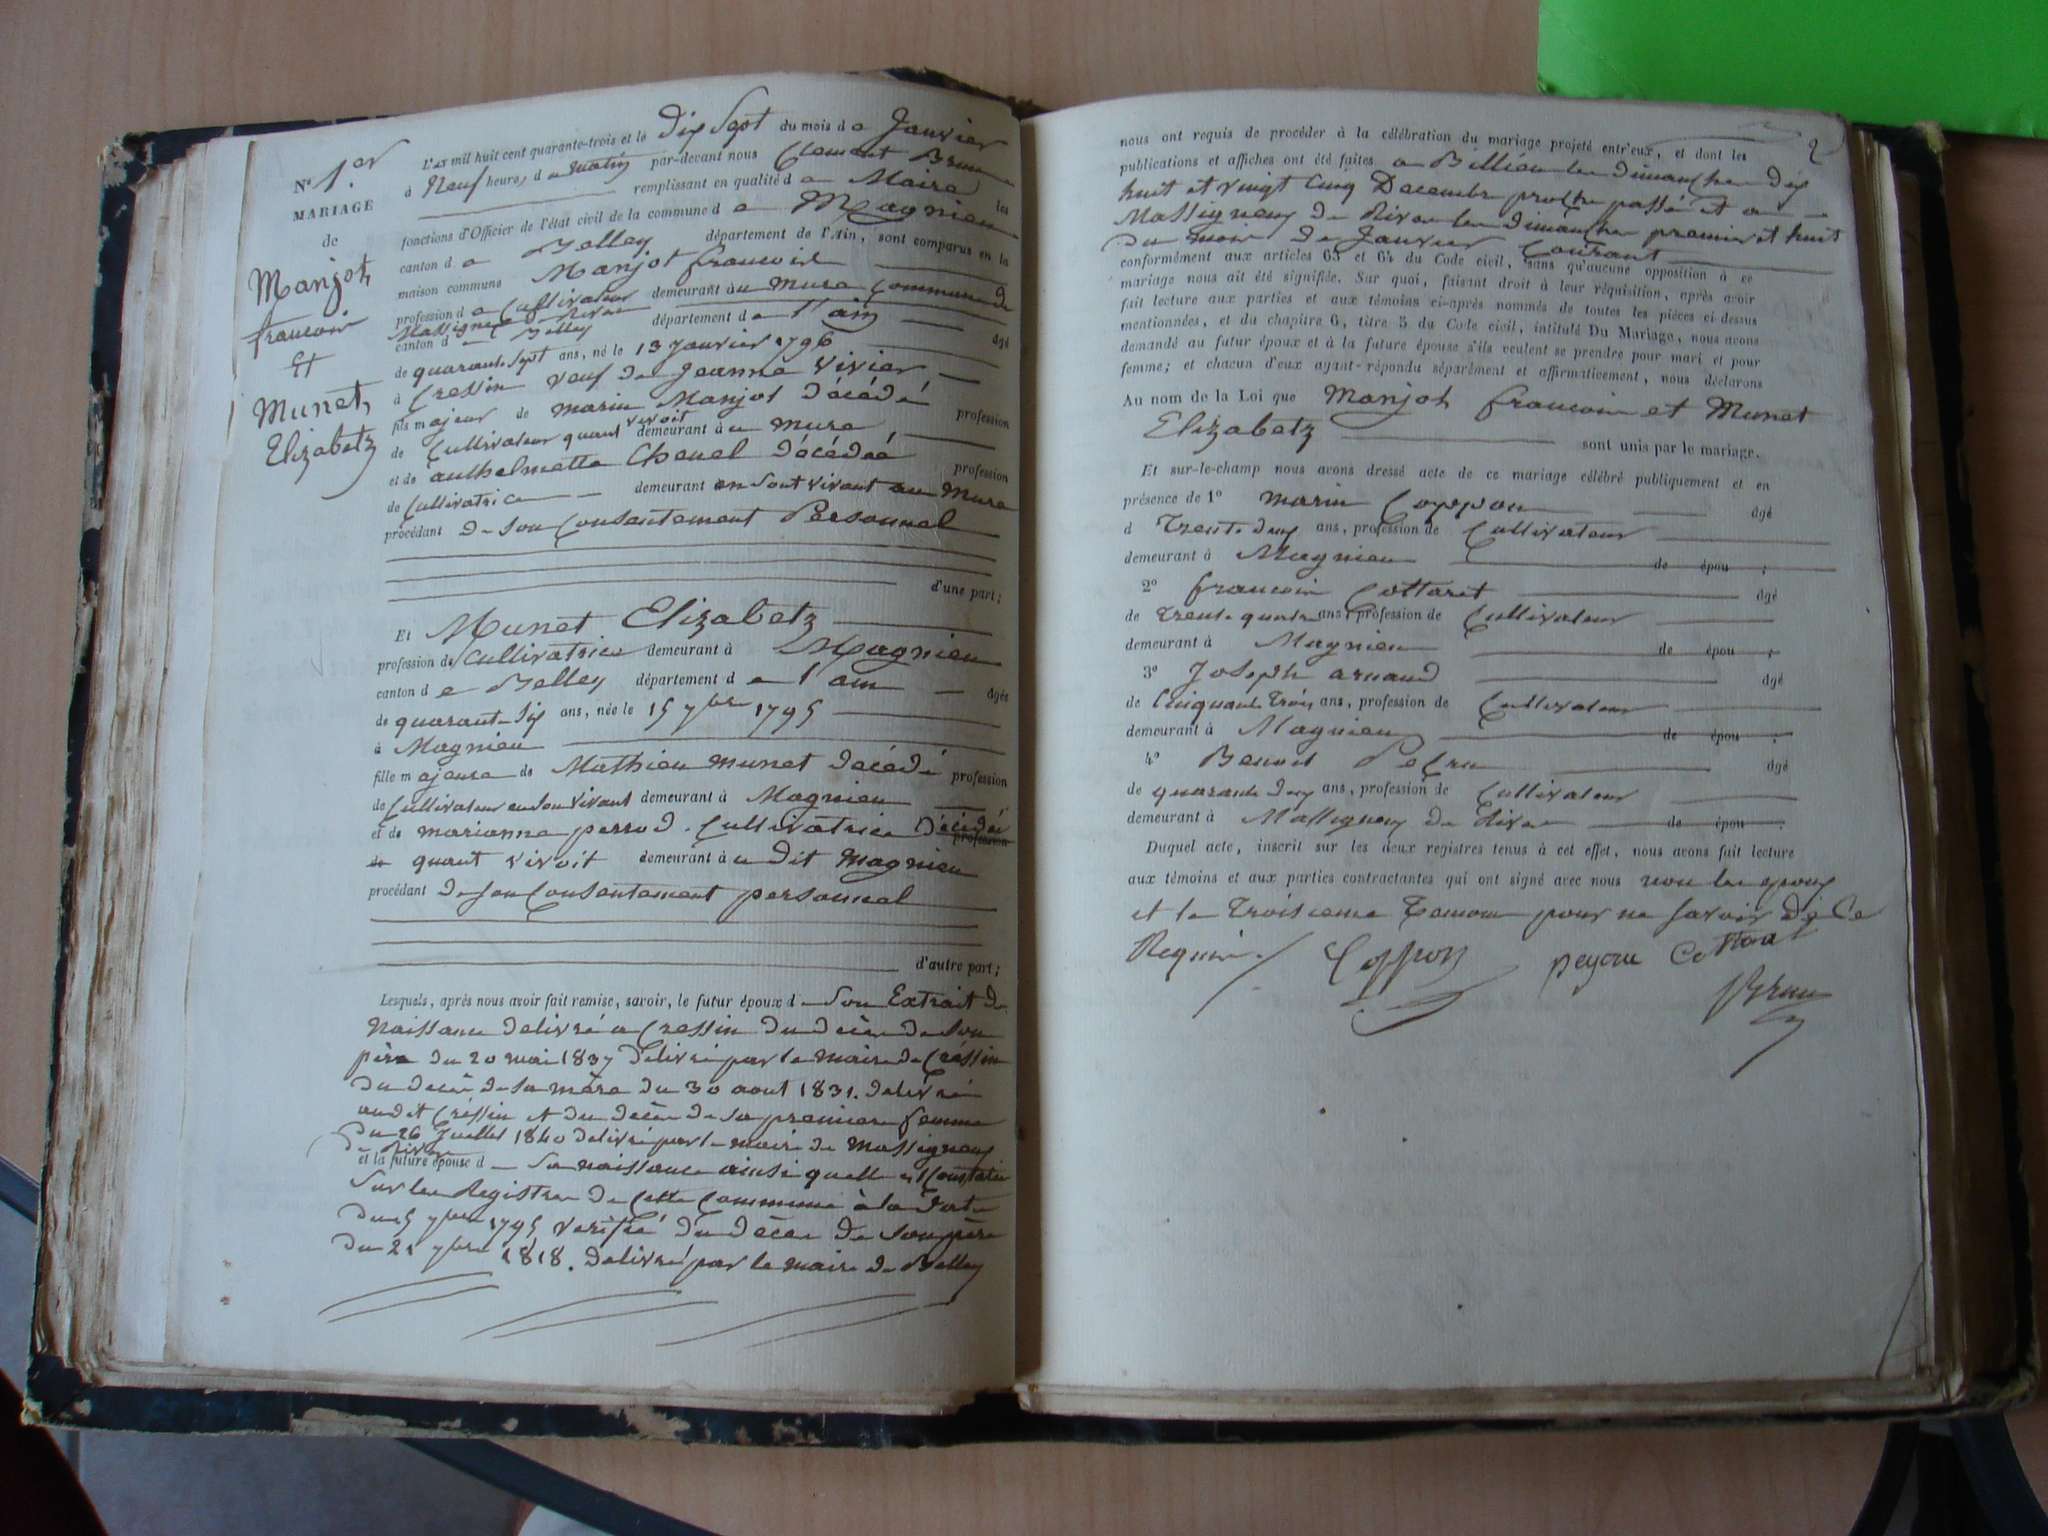 N.° 1.er
MARIAGE
de
Manjot
francois
et
Munet
Elizabetz
L'AN mil huit cent quarante-trois et le Dix Sept du mois de Janvier
à Neuf heures du matin par-devant nous Clement Brun
remplissant en qualité de Maire les
fonctions d'Officier de l'état civil de la commune de Magnieu
canton de Belley département de l'Ain, sont comparus en la
maison commune Manjot francois
profession de Cultivateur demeurant au mure Commune de
Massigneu de Rive
canton de Belley département de l'ain âgé
de quarante Sept ans, né le 13 Janvier 1796
à Cressin veuf de Jeanne Vivier
fils majeur de marin Manjot Décédé profession
de Cultivateur quant vivoit demeurant au mure
et de anthelmette Chenel Décédée profession
de Cultivatrice demeurant en Sont vivant au Mure
procédant de Son Consentement Personnel
d'une part;
Et Munet Elizabetz
profession de Cultivatrice demeurant à Magnieu
canton de Belley département de l'ain âgée
de quarante Six ans, née le 15 7bre 1795
à Magnieu
fille majeure de Mathieu munet Décédé profession
de Cultivateur en Son vivant demeurant à Magnieu
et de marianne perrod. Cultivatrice Décédée profession
de quant vivoit demeurant au dit Magnieu
procédant de Son Consentement personnel
d'autre part;
Lesquels, après nous avoir fait remise, savoir, le futur époux de Son Extrait de
Naissance delivré a Cressin du décès de Son
père du 20 mai 1837 delivré par le maire de Cressin
du decès de Sa mère du 30 aout 1831. delivré
audit Cressin et du decès de Sa premiere femme
du 26 Juellet 1840 delivré par le maire de Massigneux
de Rive
et la future épouse de Sa naissance ainsi quelle est Constatée
Sur les Registres de Cette Commune à la Date
du 15 7bre 1795 verifié du décès de Son père
du 21 7bre 1818. delivré par le maire de Belley
2
nous ont requis de procéder à la célébration du mariage projeté entr'eux, et dont les
publications et affiches ont été faites a Billieu les dimanches dix
huit et vingt Cinq Decembre proche passé et a
Massigneux de Rive les dimanches premier et huit
du mois de Janvier Courant
conformément aux articles 63 et 64 du Code civil, sans qu'aucune opposition à ce
mariage nous ait été signifiée. Sur quoi, faisant droit à leur réquisition, après avoir
fait lecture aux parties et aux témoins ci-après nommés de toutes les pièces ci-dessus
mentionnées, et du chapitre 6, titre 5 du Code civil, intitulé Du Mariage, nous avons
demandé au futur époux et à la future épouse s'ils veulent se prendre pour mari et pour
femme; et chacun d'eux ayant répondu séparément et affirmativement, nous déclarons
Au nom de la Loi que Manjot francois et Munet
Elizabetz sont unis par le mariage.
Et sur-le-champ nous avons dressé acte de ce mariage célébré publiquement et en
présence de 1° marin Coppon âgé
d Trente deux ans, profession de Cultivateur
demeurant à Magnieu de épou ;
2° francois Cottaret âgé
de trente quatre ans, profession de Cultivateur
demeurant à Magnieu de épou ;
3° Joseph arnaud âgé
de Cinquante Trois ans, profession de Cultivateur
demeurant à Magnieu de épou ;
4° Benoit âgé
de quarante deux ans, profession de Cultivateur
demeurant à Massigneux de Rive de épou .
Duquel acte, inscrit sur les deux registres tenus à cet effet, nous avons fait lecture
aux témoins et aux parties contractantes qui ont signé avec nous non les epoux
et le troisieme Temoin pour ne Savoir de Ce
Requis.
Coppon Cottaret
Brun